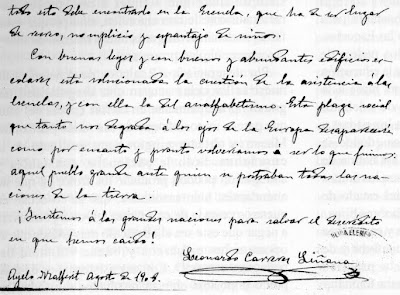 todo esto debe encontrado en la Escuela, que ha de ser lugar
de recreo, no suplicio y espantajo de niños.
Con buenas leyes y con buenos y abundantes edificios es-
colares está solucionada la cuestión de la asistencia á las
escuelas, y con ella la del analfabetismo. Esta plaga social
que tanto nos degrada á los ojos de la Europa desaparecería
como por encanto y pronto volveríamos á ser lo que fuimos:
aquel pueblo grande ante quien se postraban todas las na-
ciones de la tierra.
¡Imitemos á las grandes naciones para salvar el descrédito
en que hemos caido!
Leonardo Carrera Liñana
Ayelo Malferit Agosto de 190